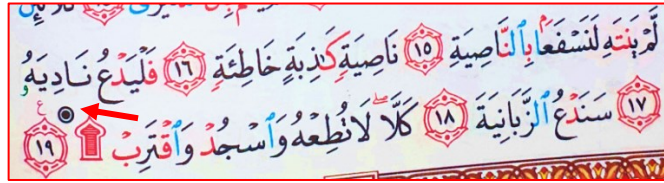 لَّمْ يَنتَهِ لَنَسْفَعًۢا بِٱلنَّاصِيَةِ ١٥ نَاصِيَةٍ كَٰذِبَةٍ خَاطِئَةٍ ١٦ فَلْيَدْعُ نَادِيَهُۥ
١٧ سَنَدْعُ ٱلزَّبَانِيَةَ ١٨ كَلَّا لَا تُطِعْهُ وَٱسْجُدْ وَٱقْتَرِب ۩ ١٩ ع